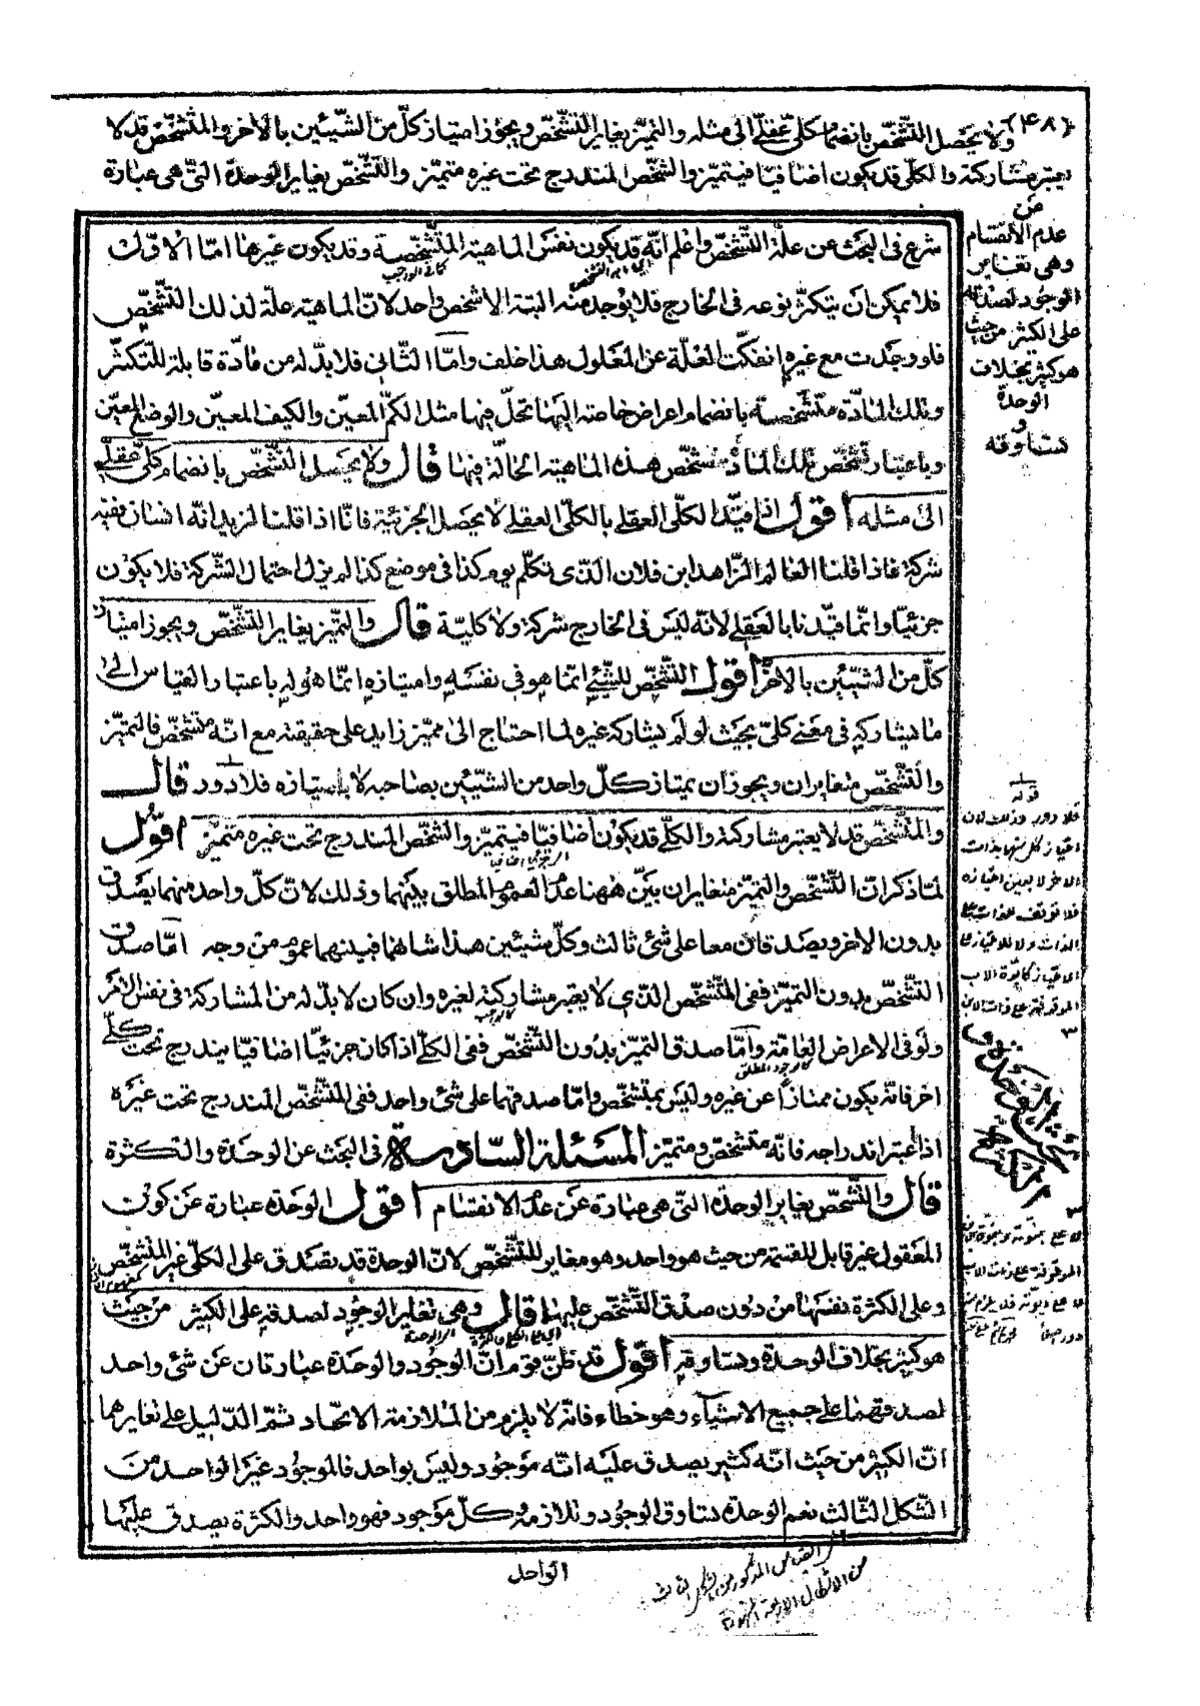 (۴۸)
ولا يحصل التشخّص بانضمام كلّى عقلىّ الى مثله والتميّز يغاير التشخّص ويجوز امتياز كلّ من الشيئين بالاخر والمتشخّص قد لا
يعتبر مشاركته والكلّى قد يكون اضافيا فيتميّز والشخص المندرج تحت غيره متميّز والتّشخّص يغاير الوحدة التى هى عبارة
عن
عدم الانقسام
وهى تغاير
الوجود لصدقه
على الكثير من حيث
هو كثير بخلاف
الوحدة
و
تساوقه
شرع فى البحث عن علّة التّشخّص واعلم انّه قد يكون نفس الماهية المتشخّصة وقد يكون غيرها امّا الاوّل
فلا يمكن ان يتكثّر نوعه فى الخارج فلا يوجد منه البتة الا شخص واحد لانّ الماهية علّة لذلك التّشخّص
فلو وجدت مع غيره انفكّت العلّة عن المعلول هذا خلف وامّا الثّانى فلا بدّ له من مادّة قابلة للتكثّر
وتلك المادّة متشخصة بانضمام اعراض خاصة اليها تحلّ فيها مثل الكمّ المعيّن والكيف المعيّن والوضع المعيّن
وباعتبار تشخّص تلك المادّة تشخّص هذه الماهية الحالّة فيها قال ولا يحصل التشخّص بانضمام كلّى عقلى
الى مثله اقول اذا قيّد الكلّى العقلى بالكلّى العقلى لا يحصل الجزئيّة فانّا اذا قلنا لزيد انّه انسان ففيه
شركة فاذا قلنا العالم الزّاهد ابن فلان الذّى تكلّم يوم كذا فى موضع كذا لم يزل احتمال الشّركة فلا يكون
جزئيّا وانّما قيّدنا بالعقلى لانّه ليس فى الخارج شركة ولا كليّة قال والتميّز يغاير التشخّص ويجوز امتياز
كلّ من الشيّئين بالاخر اقول التّشخّص للشّئ انّما هو فى نفسه وامتيازه انّما هو له باعتبار القياس الى
ما يشاركه فى معنى كلىّ بحيث لو لم يشاركه غيره لما احتاج الى مميّز زايد على حقيقته مع انّه متشخّص فالتميّز
والتّشخّص متغايران ويجوز ان يمتاز كلّ واحد من الشيّئين بصاحبه لا بامتيازه فلا دور قال
والمتّشخّص قد لا يعتبر مشاركته والكلّى قد يكون اضافيّا فيتميّز والشّخص المندرج تحت غيره متميّز اقول
لمّا ذكر انّ التّشخّص والتميّز متغايران بيّن ههنا عدم العموم المطلق بينهما وذلك لانّ كلّ واحد منهما يصدق
بدون الاخر ويصدقان معا على شئ ثالث وكلّ شيئين هذا شانهما فبينهما عموم من وجه امّا صدق
التّشخّص بدون التميّز ففى المتّشخّص الذّى لا يعتبر مشاركته لغيره وان كان لا بدّ له من المشاركة فى نفس الامر
ولو فى الاعراض العامّة وامّا صدق التميّز بدون التّشخّص ففى الكلّى اذا كان جزئيّا اضافيّا يندرج تحت كلّى
اخر فانّه يكون ممتازا عن غيره وليس بمتشخّص وامّا صدقهما على شئ واحد ففى المتّشخّص المندرج تحت غيره
اذا اعتبر اندراجه فانّه متشخّص ومتميّز المسئلة السّادسة فى البحث عن الوحدة والكثرة
قال والتّشخّص يغاير الوحدة التى هى عبارة عن عدم الانقسام اقول الوحدة عبارة عن كون
المعقول غير قابل للقسمة من حيث هو واحد وهو مغاير للتّشخّص لانّ الوحدة قد يصدق على الكلّى غير المتشخّص
وعلى الكثرة نفسها من دون صدق التّشخّص عليها قال وهى تغاير الوجود لصدقه على الكثير من حيث
هو كثير بخلاف الوحدة وتساوقه اقول قد ظنّ قوم انّ الوجود والوحدة عبارتان عن شئ واحد
لصدقهما على جميع الاشياء وهو خطاء فانّه لا يلزم من الملازمة الاتّحاد ثمّ الدّليل على تغايرهما
انّ الكثير من حيث انّه كثير يصدق عليه انّه موجود وليس بواحد فالموجود غير الواحد من
الشّكل الثّالث نعم الوحدة تساوق الوجود وتلازمه فكلّ موجود فهو واحد والكثرة يصدق عليها
الواحد
قوله
فلا دور وذلك لان
امتياز كل منهما بذات
الاخر لا بعين امتيازه
بحث الوحدة و
الكثرة
القياس المذكور من الشكل الثالث
من الاشكال الاربعة المشهورة